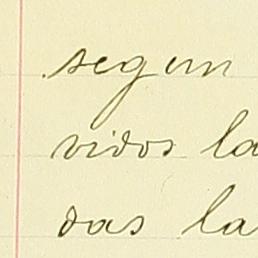 segun
vidos la
das la